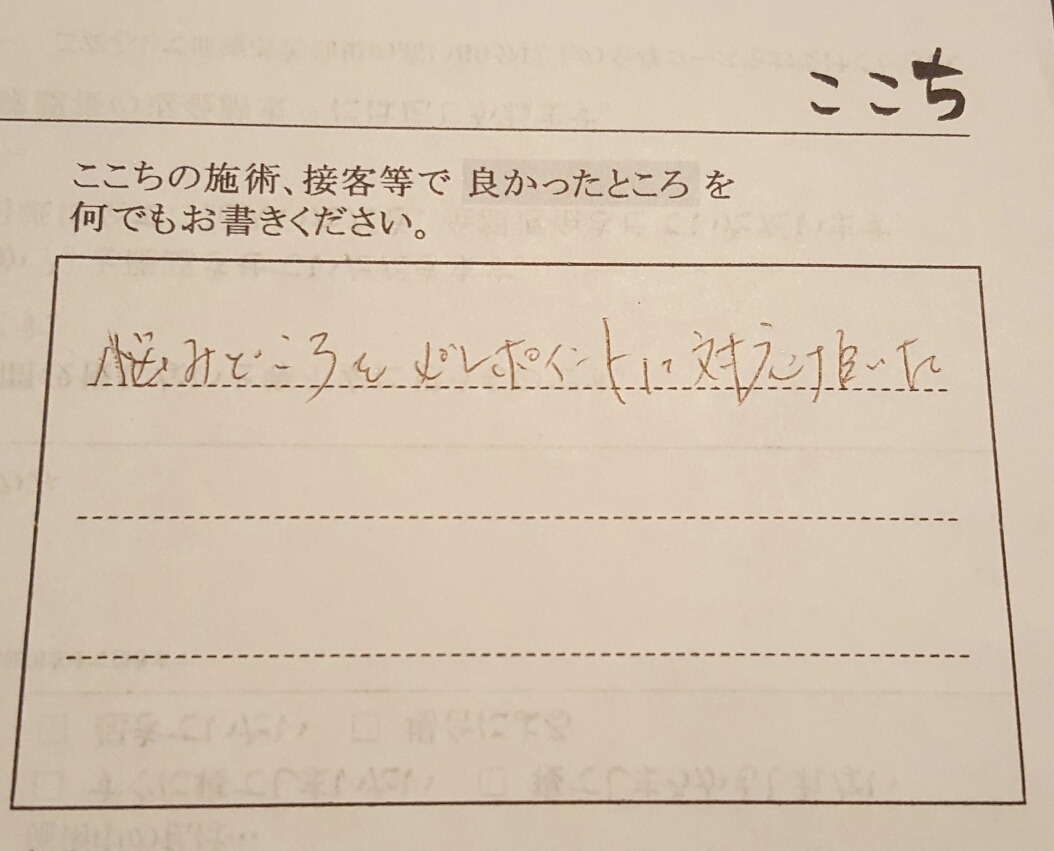 ここち
ここちの施術、接客等で 良かったところ を
何でもお書きください。
悩みどころをピンポイントに対応頂いた